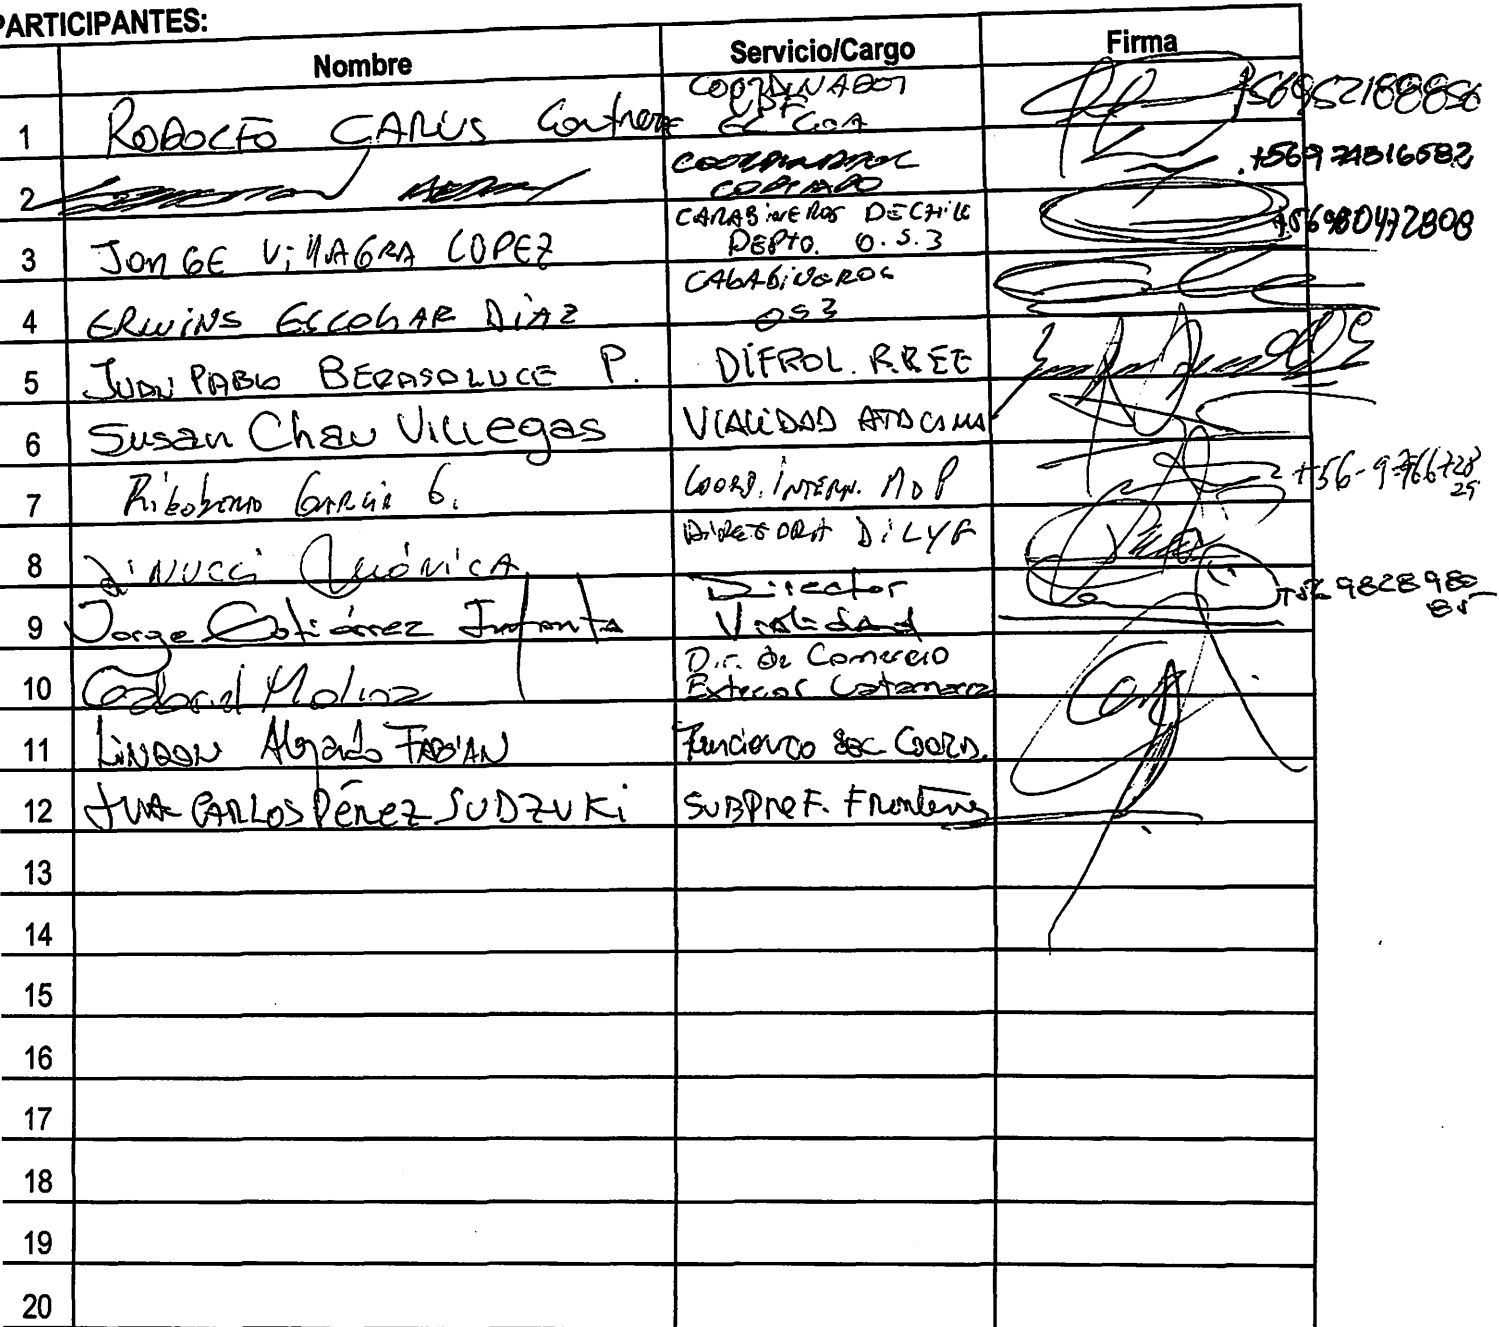 PARTICIPANTES:
Nombre Servicio/Cargo Firma
1 RODOLFO CARUS Contreras COORDINADOR +56952188856
2 COORDINADOR COPIAPO +56974816582
3 JORGE VILLAGRA LOPEZ CARABINEROS DE CHILE
DEPTO. O.S.3 +56980472808
4 ERWINS ESCOBAR DIAZ CARABINEROS
OS3
5 JUAN PABLO BERASOLUCE P. DIFROL. RREE
6 Susan Chau Villegas VIALIDAD ATACAMA
7 García G. COORD. INTERN. MOP +56-9-766728
25
8 VINUCCI DIRECTORA DILYF
9 Jorge Gotiérrez Director
Vialidad 9828980
85
10 Gabriel Molina Dir. de Comercio
Exterior Catamarca
11 FABIAN Funcionario Sec Coord.
12 JUAN CARLOS PÉREZ SUDZUKI SUBPREF. Fronteras
13
14
15
16
17
18
19
20